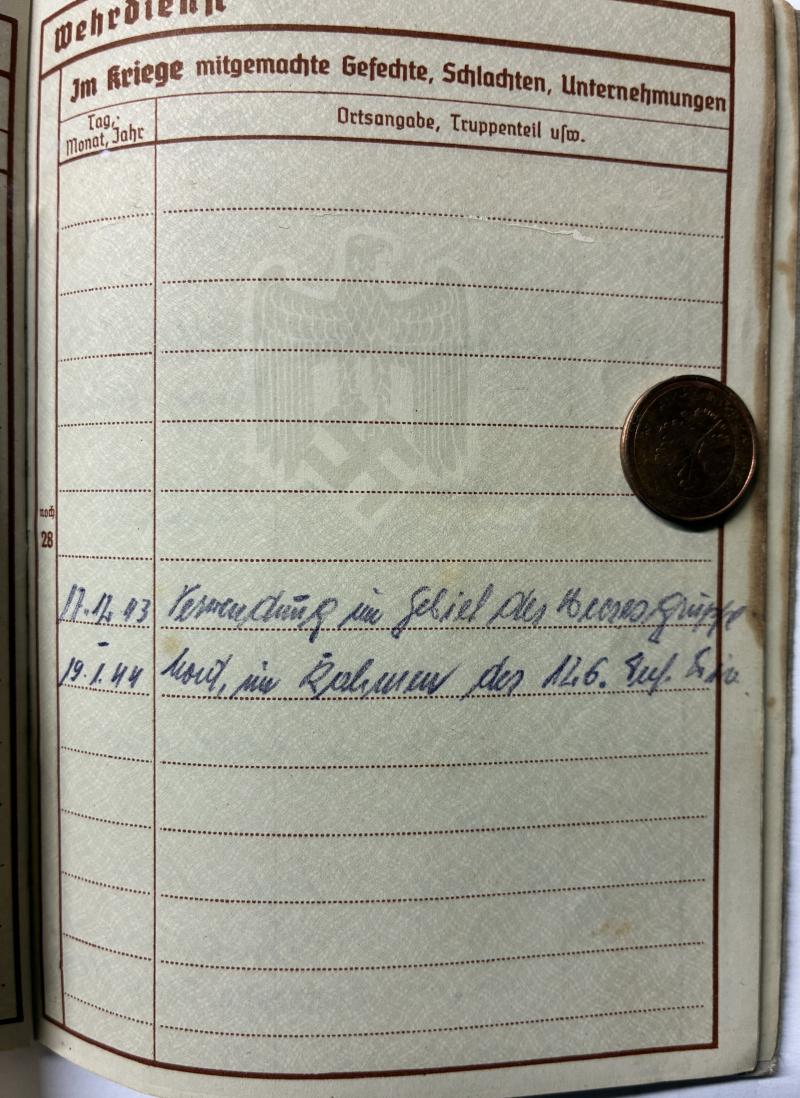 Wehrdienst
Im Kriege mitgemachte Gefechte, Schlachten, Unternehmungen
Tag, Monat, Jahr
Ortsangabe, Truppenteil usw.
noch
28
17.12.43 Verwendung im Gebiet der Heeresgruppe
19.1.44 Nord, im Rahmen der 126. Inf. Div.